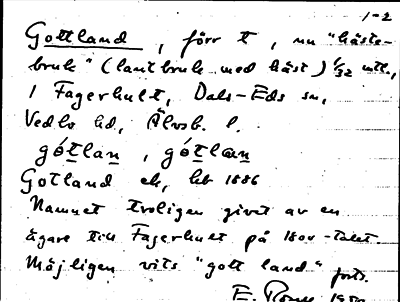 1-2
Gottland, förr t, nu "häste-
bruk" (lantbruk med häst) 1/32 mtl.,
i Fagerhult, Dals-Eds sn,
Vedbo hd, Älvsb. l.
gótlan, gótlan
Gotland ek, kb 1886
Namnet troligen givet av en
ägare till Fagerhult på 1800-talet.
Möjligen vits "gott land" forts.